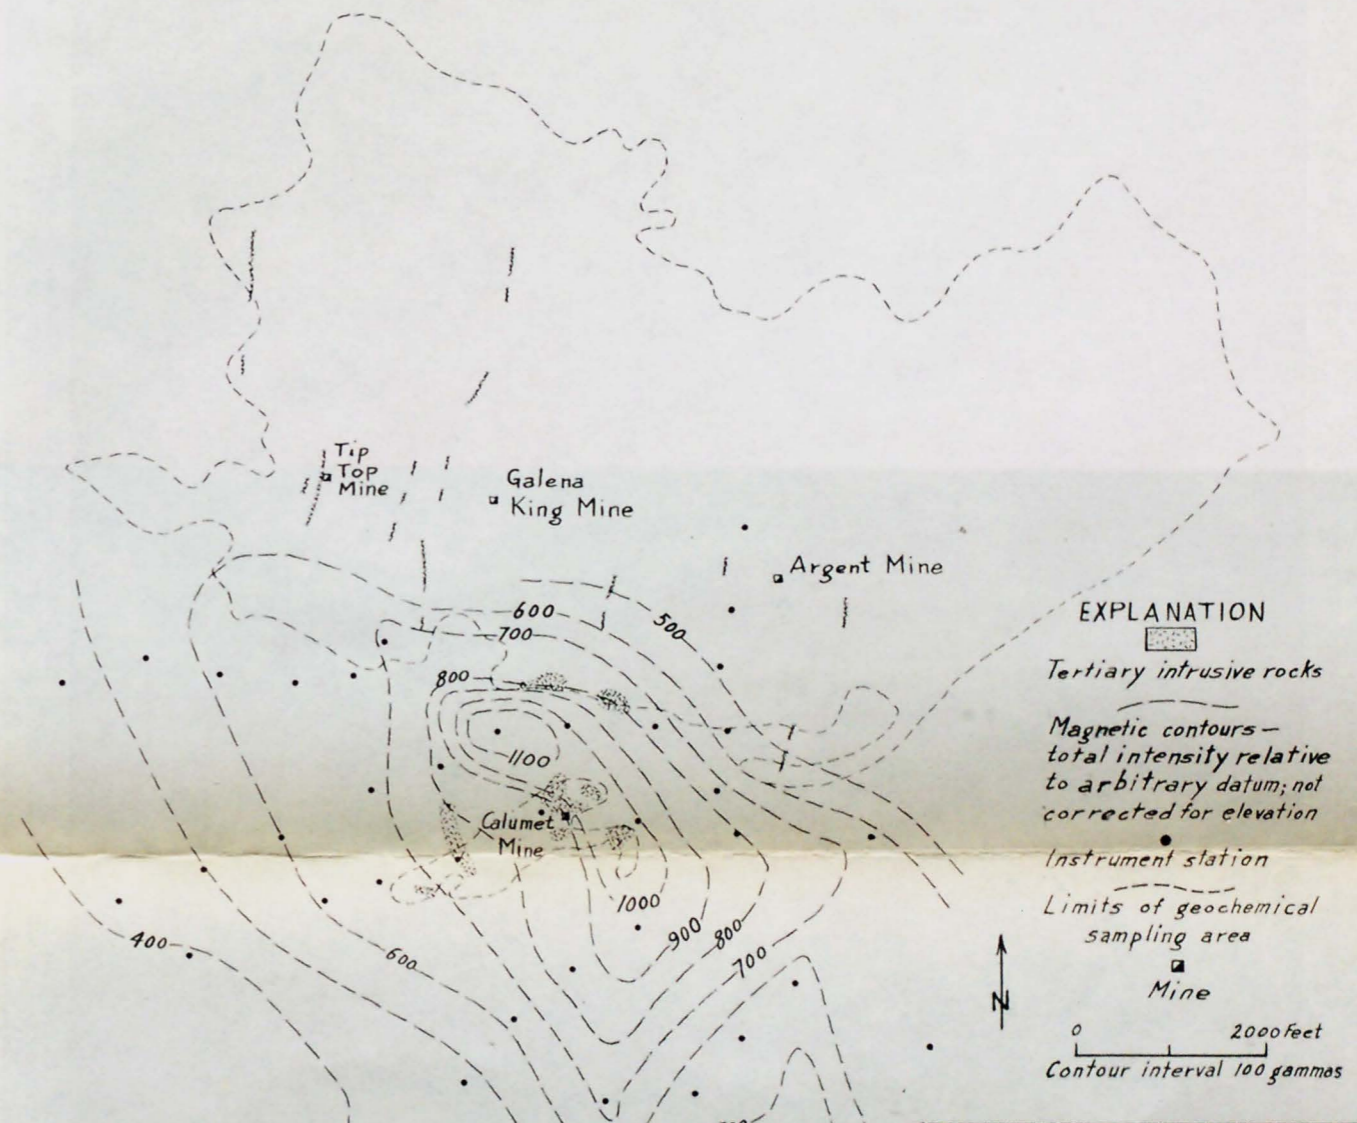 Tip
Top
Mine
Galena
King Mine
Argent Mine
600
500
700
800
1100
Calumet
Mine
1000
900
800
700
400
600
EXPLANATION
Tertiary intrusive rocks
Magnetic contours —
total intensity relative
to arbitrary datum; not
corrected for elevation
Instrument station
Limits of geochemical
sampling area
Mine
N
0 2000 Feet
Contour interval 100 gammas